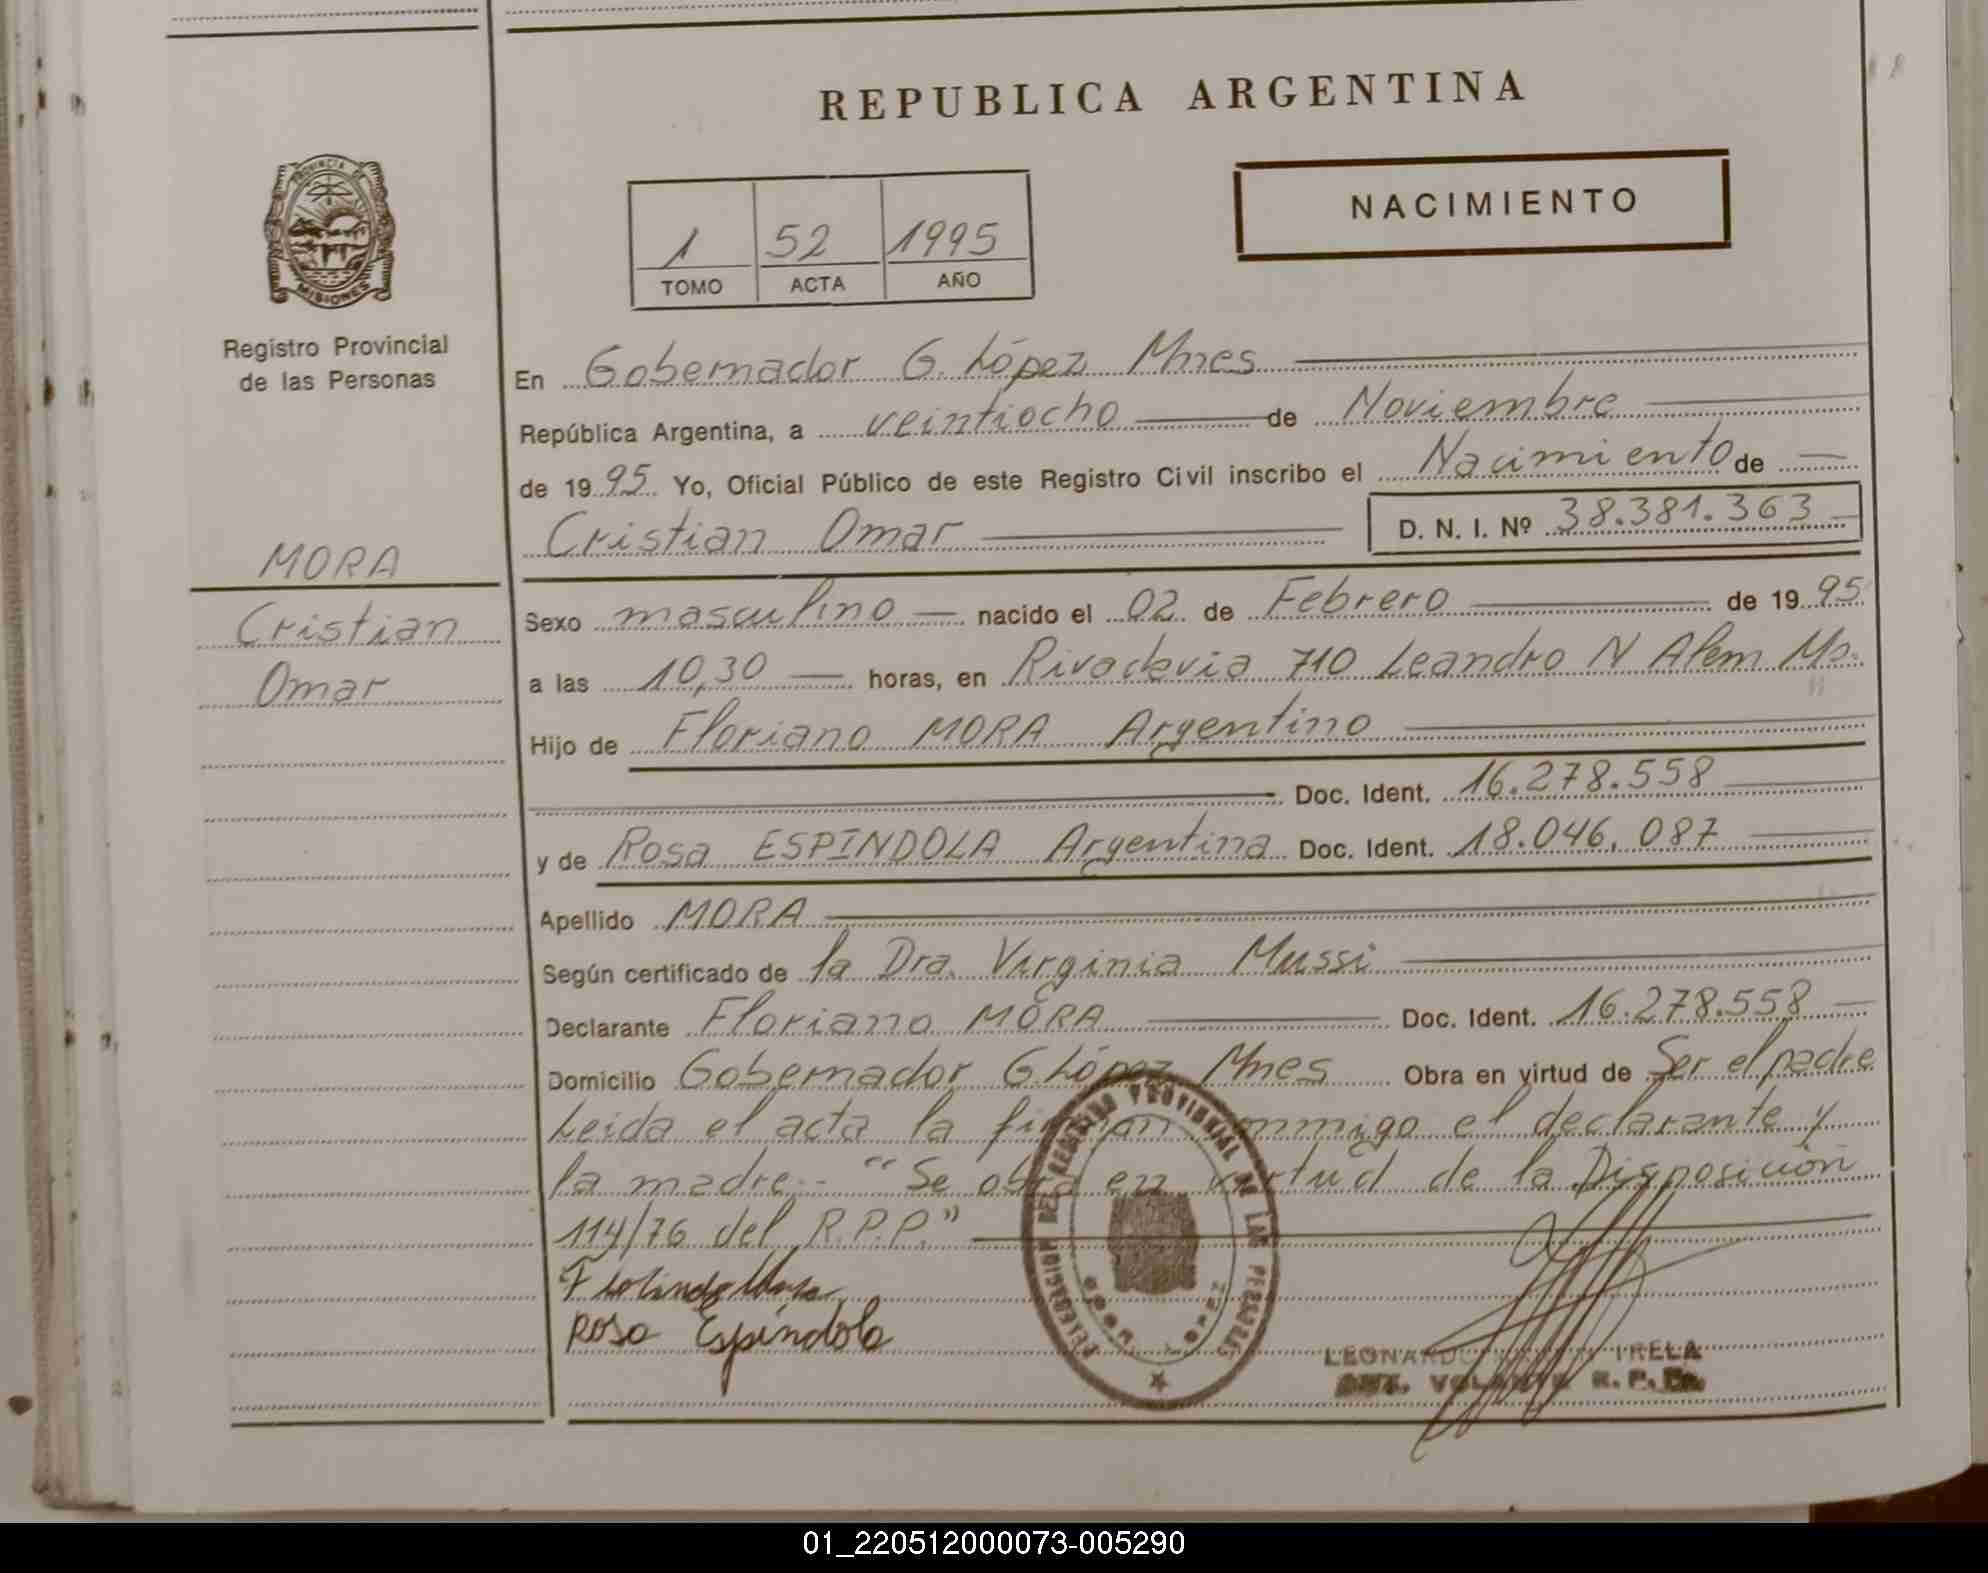 REPUBLICA ARGENTINA
PROVINCIA DE
MISIONES
NACIMIENTO
1 52 1995
TOMO ACTA AÑO
Registro Provincial
de las Personas
En Gobernador G. López Mnes
República Argentina, a veintiocho de Noviembre
de 1995 Yo, Oficial Público de este Registro Civil inscribo el Nacimiento de
Cristian Omar D. N. I. Nº 38.381.363
MORA
Cristian
Omar
Sexo masculino nacido el 02 de Febrero de 1995
a las 10,30 horas, en Rivadavia 710 Leandro N Alem Ms.
Hijo de Floriano MORA Argentino
Doc. Ident. 16.278.558
y de Rosa ESPINDOLA Argentina Doc. Ident. 18.046.087
Apellido MORA
Según certificado de la Dra. Virginia Mussi
Declarante Floriano MORA Doc. Ident. 16.278.558
Domicilio Gobernador G López Mnes Obra en virtud de Ser el padre
Leida el acta la firman conmigo el declarante y
la madre.- "Se obra en virtud de la Disposición
114/76 del R.P.P."
Rosa Espíndola
DELEGACION DEL REGISTRO PROVINCIAL DE LAS PERSONAS
LOPEZ
R. P.
01_220512000073-005290